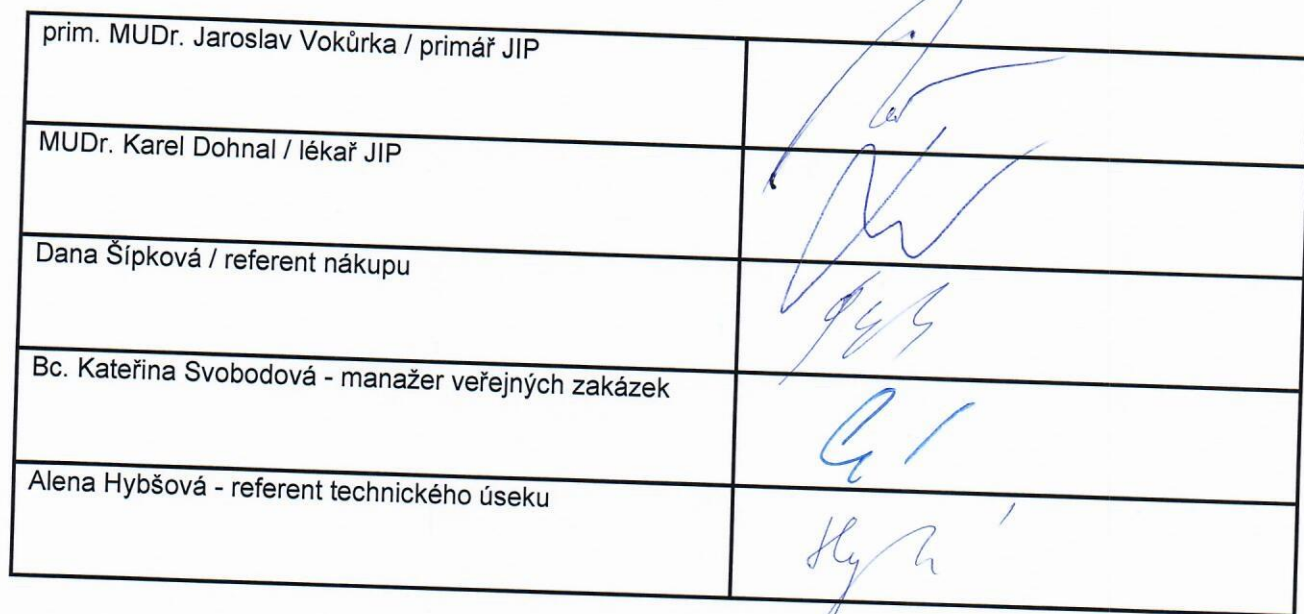 prim. MUDr. Jaroslav Vokůrka / primář JIP
MUDr. Karel Dohnal / lékař JIP
Dana Šípková / referent nákupu
Bc. Kateřina Svobodová - manažer veřejných zakázek
Alena Hybšová - referent technického úseku